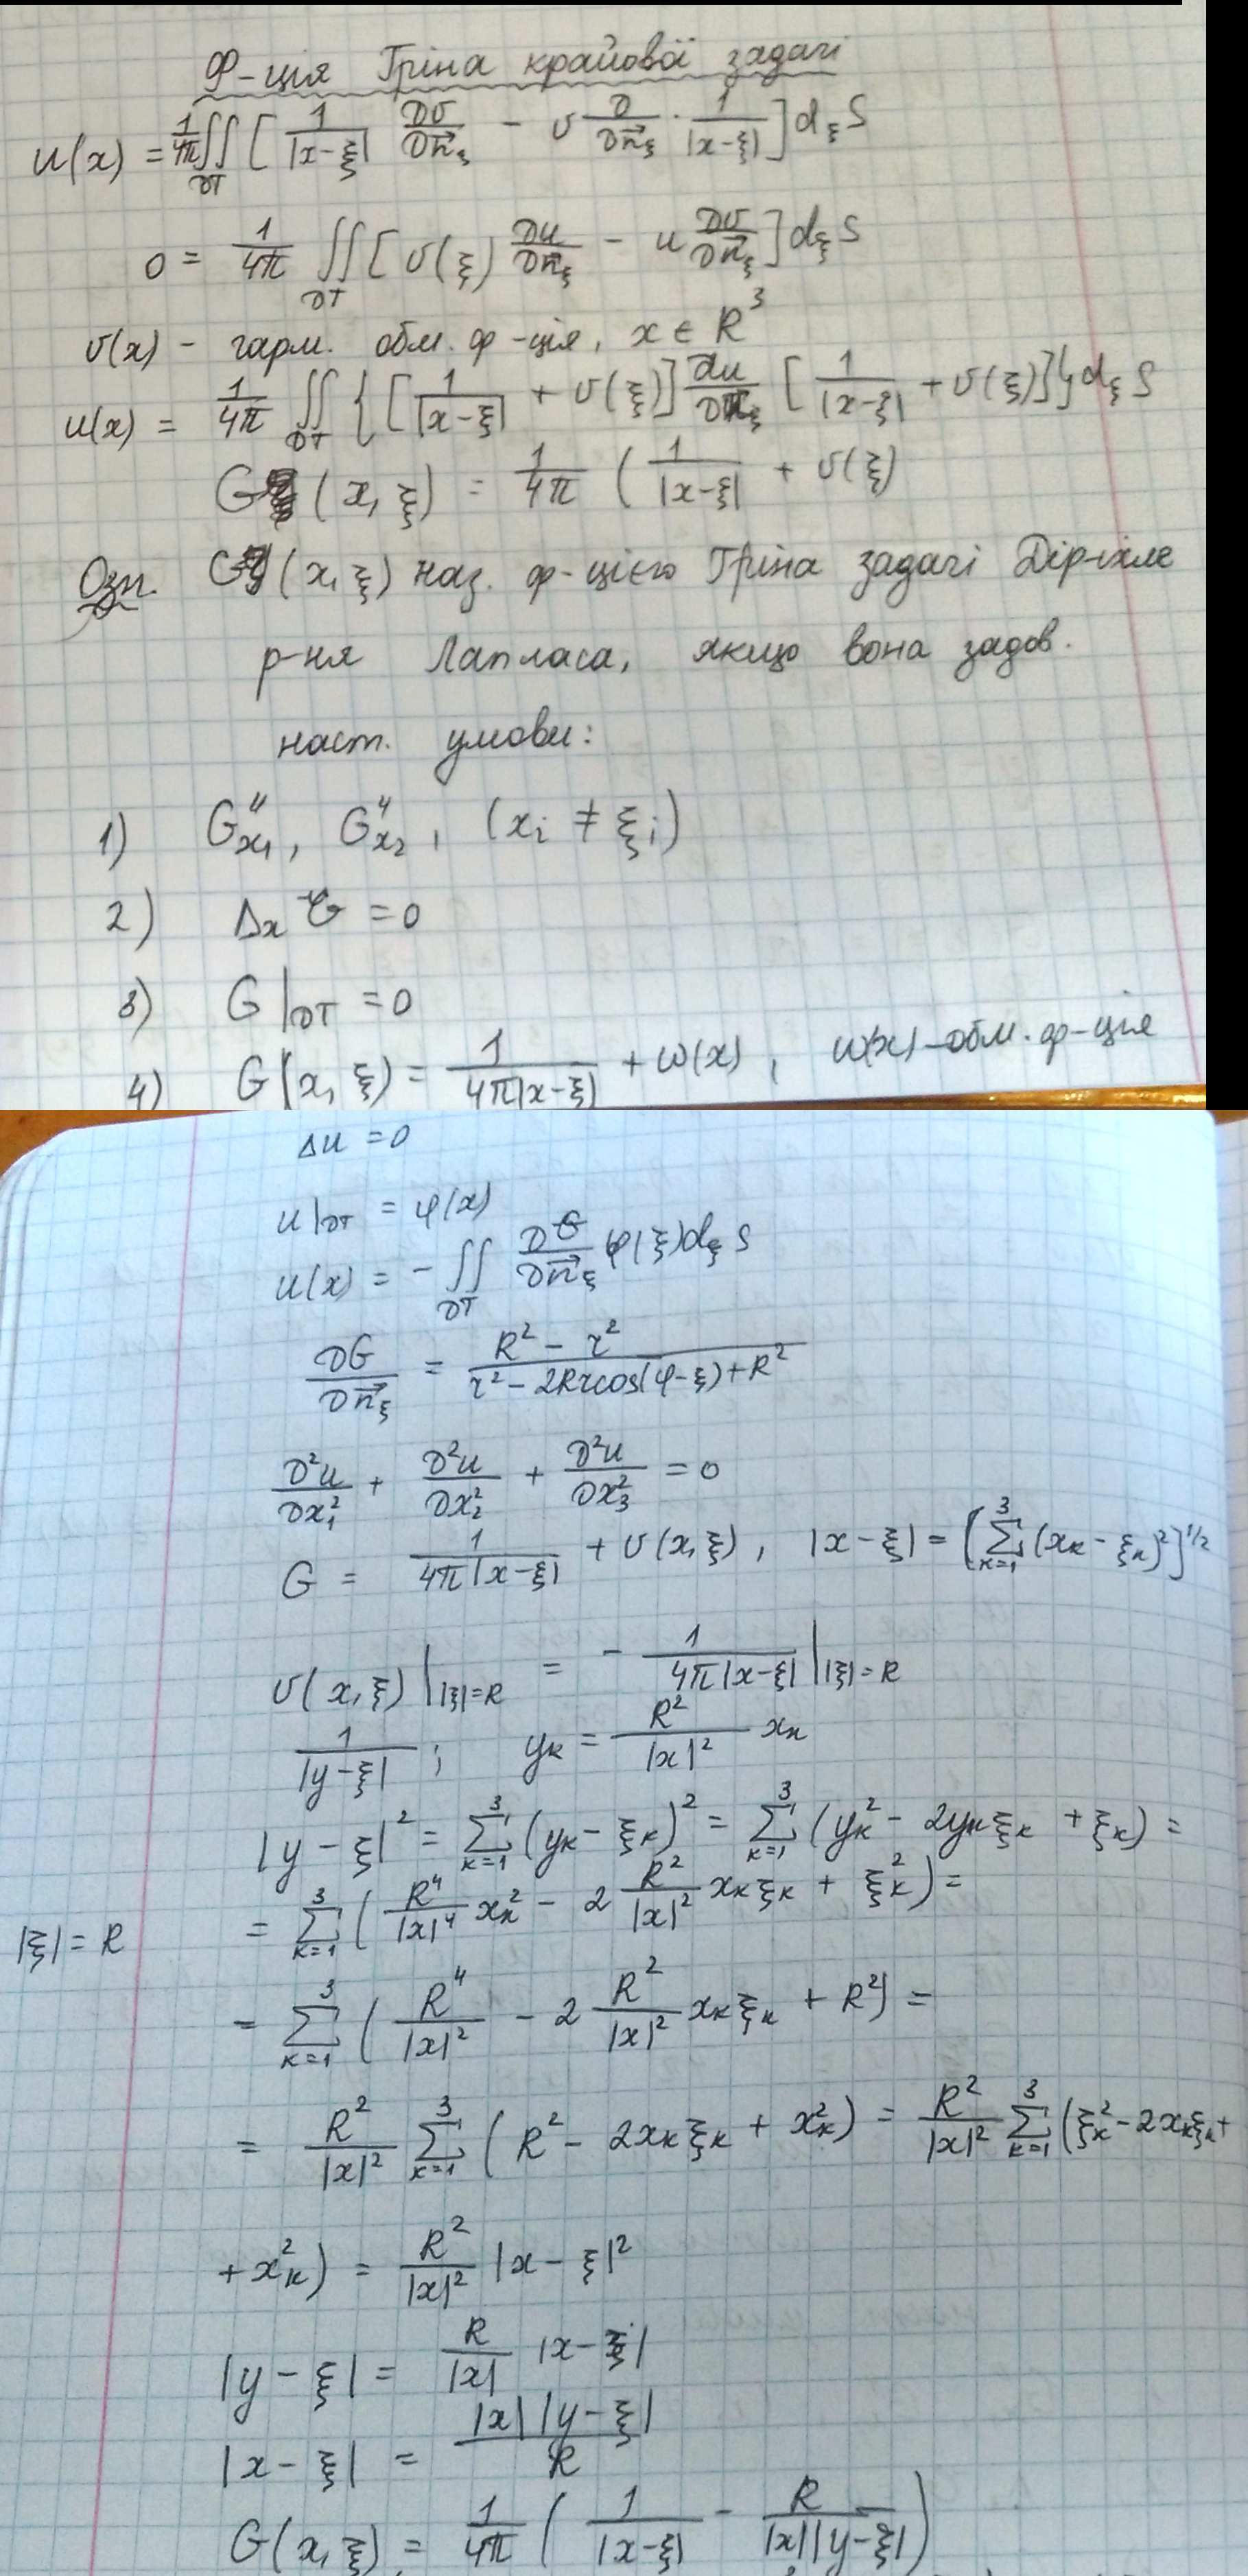 Ф-ція Гріна крайової задачі
u(x) = 1/4π ∬_∂T [ 1/|x-ξ| ∂υ/∂n⃗_ξ - υ ∂/∂n⃗_ξ · 1/|x-ξ| ] d_ξ S
0 = 1/4π ∬_∂T [ υ(ξ) ∂u/∂n⃗_ξ - u ∂υ/∂n⃗_ξ ] d_ξ S
υ(x) - гарм. обм. ф-ція, x ∈ R³
u(x) = 1/4π ∬_∂T { [ 1/|x-ξ| + υ(ξ) ] ∂u/∂n_ξ [ 1/|x-ξ| + υ(ξ) ] } d_ξ S
G (x, ξ) = 1/4π ( 1/|x-ξ| + υ(ξ)
Озн. G (x, ξ) наз. ф-цією Гріна задачі Діріхле
р-ня Лапласа, якщо вона задов.
наст. умови:
1) G''_x₁, G''_x₂, (x_i ≠ ξ_i)
2) Δ_x G = 0
3) G|_∂T = 0
4) G(x, ξ) = 1/4π|x-ξ| + ω(x), ω(x) - обм. ф-ція
Δu = 0
u|_∂T = φ(x)
u(x) = - ∬_∂T ∂G/∂n⃗_ξ φ(ξ) d_ξ S
∂G/∂n⃗_ξ = R² - r² / r² - 2Rr cos(φ-ξ) + R²
∂²u/∂x₁² + ∂²u/∂x₂² + ∂²u/∂x₃² = 0
G = 1/4π|x-ξ| + υ(x, ξ), |x-ξ| = [ Σ_{k=1}^3 (x_k - ξ_k)² ]^{1/2}
υ(x, ξ)|_{|ξ|=R} = - 1/4π|x-ξ| |_{|ξ|=R}
1/|y-ξ| ; y_k = R²/|x|² x_k
|y-ξ|² = Σ_{k=1}^3 (y_k - ξ_k)² = Σ_{k=1}^3 (y_k² - 2y_kξ_k + ξ_k) =
|ξ| = R = Σ_{k=1}^3 ( R⁴/|x|⁴ x_k² - 2 R²/|x|² x_kξ_k + ξ_k² ) =
= Σ_{k=1}^3 ( R⁴/|x|² - 2 R²/|x|² x_kξ_k + R² ) =
= R²/|x|² Σ_{k=1}^3 ( R² - 2x_kξ_k + x_k² ) = R²/|x|² Σ_{k=1}^3 ( ξ_k² - 2x_kξ_k +
+ x_k² ) = R²/|x|² |x-ξ|²
|y-ξ| = R/|x| |x-ξ|
|x-ξ| = |x| |y-ξ| / R
G(x, ξ) = 1/4π ( 1/|x-ξ| - R/|x||y-ξ| )